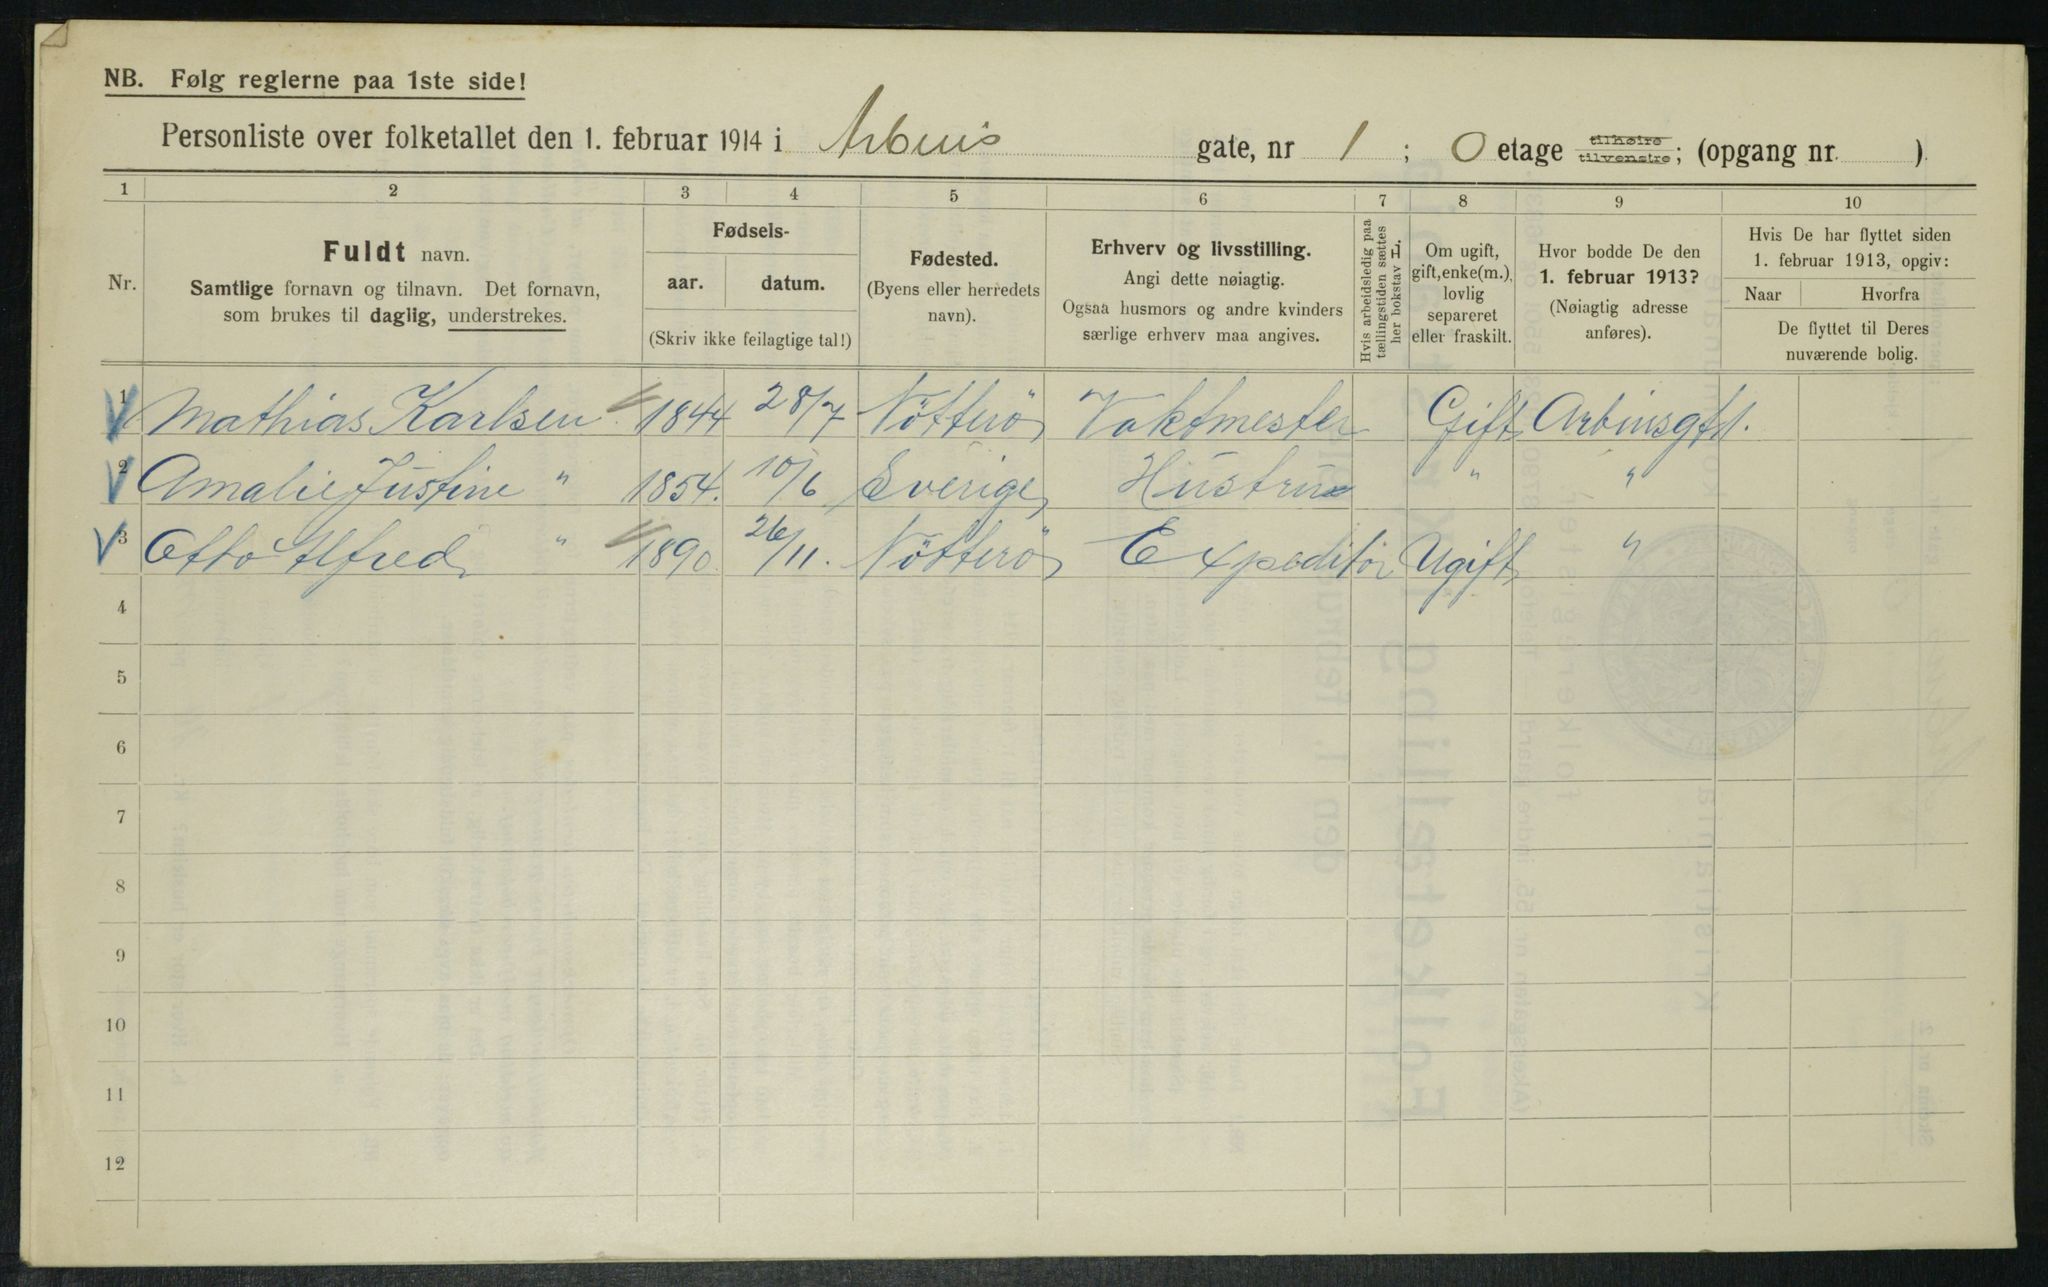 NB. Følg reglerne paa 1ste side!
Personliste over folketallet den 1. februar 1914 i Arbins gate, nr 1 ; 0 etage tilhøire tilvenstre; (opgang nr. ).
1 2 3 4 5 6 7 8 9 10
Nr.
Fuldt navn.
Samtlige fornavn og tilnavn. Det fornavn,
som brukes til daglig, understrekes.
Fødsels-
aar. datum.
(Skriv ikke feilagtige tal!)
Fødested.
(Byens eller herredets
navn).
Erhverv og livsstilling.
Angi dette nøiagtig.
Ogsaa husmors og andre kvinders
særlige erhverv maa angives.
Hvis arbeidsledig paa
tællingstiden sættes
her bokstav L
Om ugift,
gift, enke(m.),
lovlig
separeret
eller fraskilt.
Hvor bodde De den
1. februar 1913?
(Nøiagtig adresse
anføres).
Hvis De har flyttet siden
1. februar 1913, opgiv:
Naar Hvorfra
De flyttet til Deres
nuværende bolig.
1 Mathias Karlsen 1844 28/7 Nötterö Vaktmester Gift Arbinsgt 1.
2 Amalie Justine " 1854. 10/6 Sverige Hustru " "
3 Otto Alfred " 1890 26/11. Nötterö Expeditör Ugift "
4
5
6
7
8
9
10
11
12